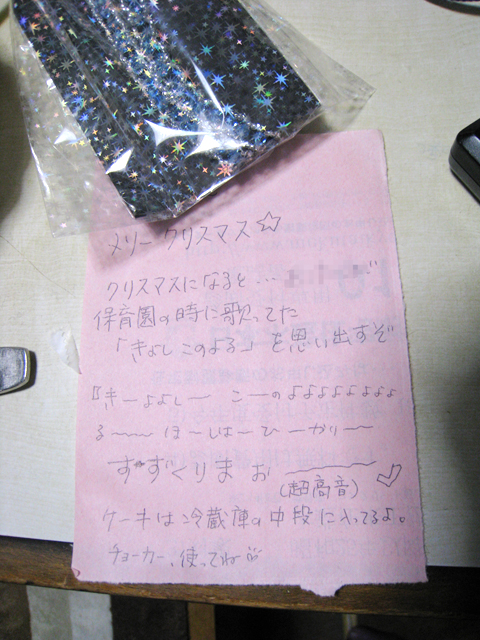 メリークリスマス☆
クリスマスになると…
保育園の時に歌ってた
「きよしこのよる」を思い出すぞ
『きーよよしー こーのよよよよよよよよ
る〜〜 ほーしはーひーかりー
すーずくりまお
(超高音)♡
ケーキは冷蔵庫の中段に入ってるよ。
チョーカー、使ってね